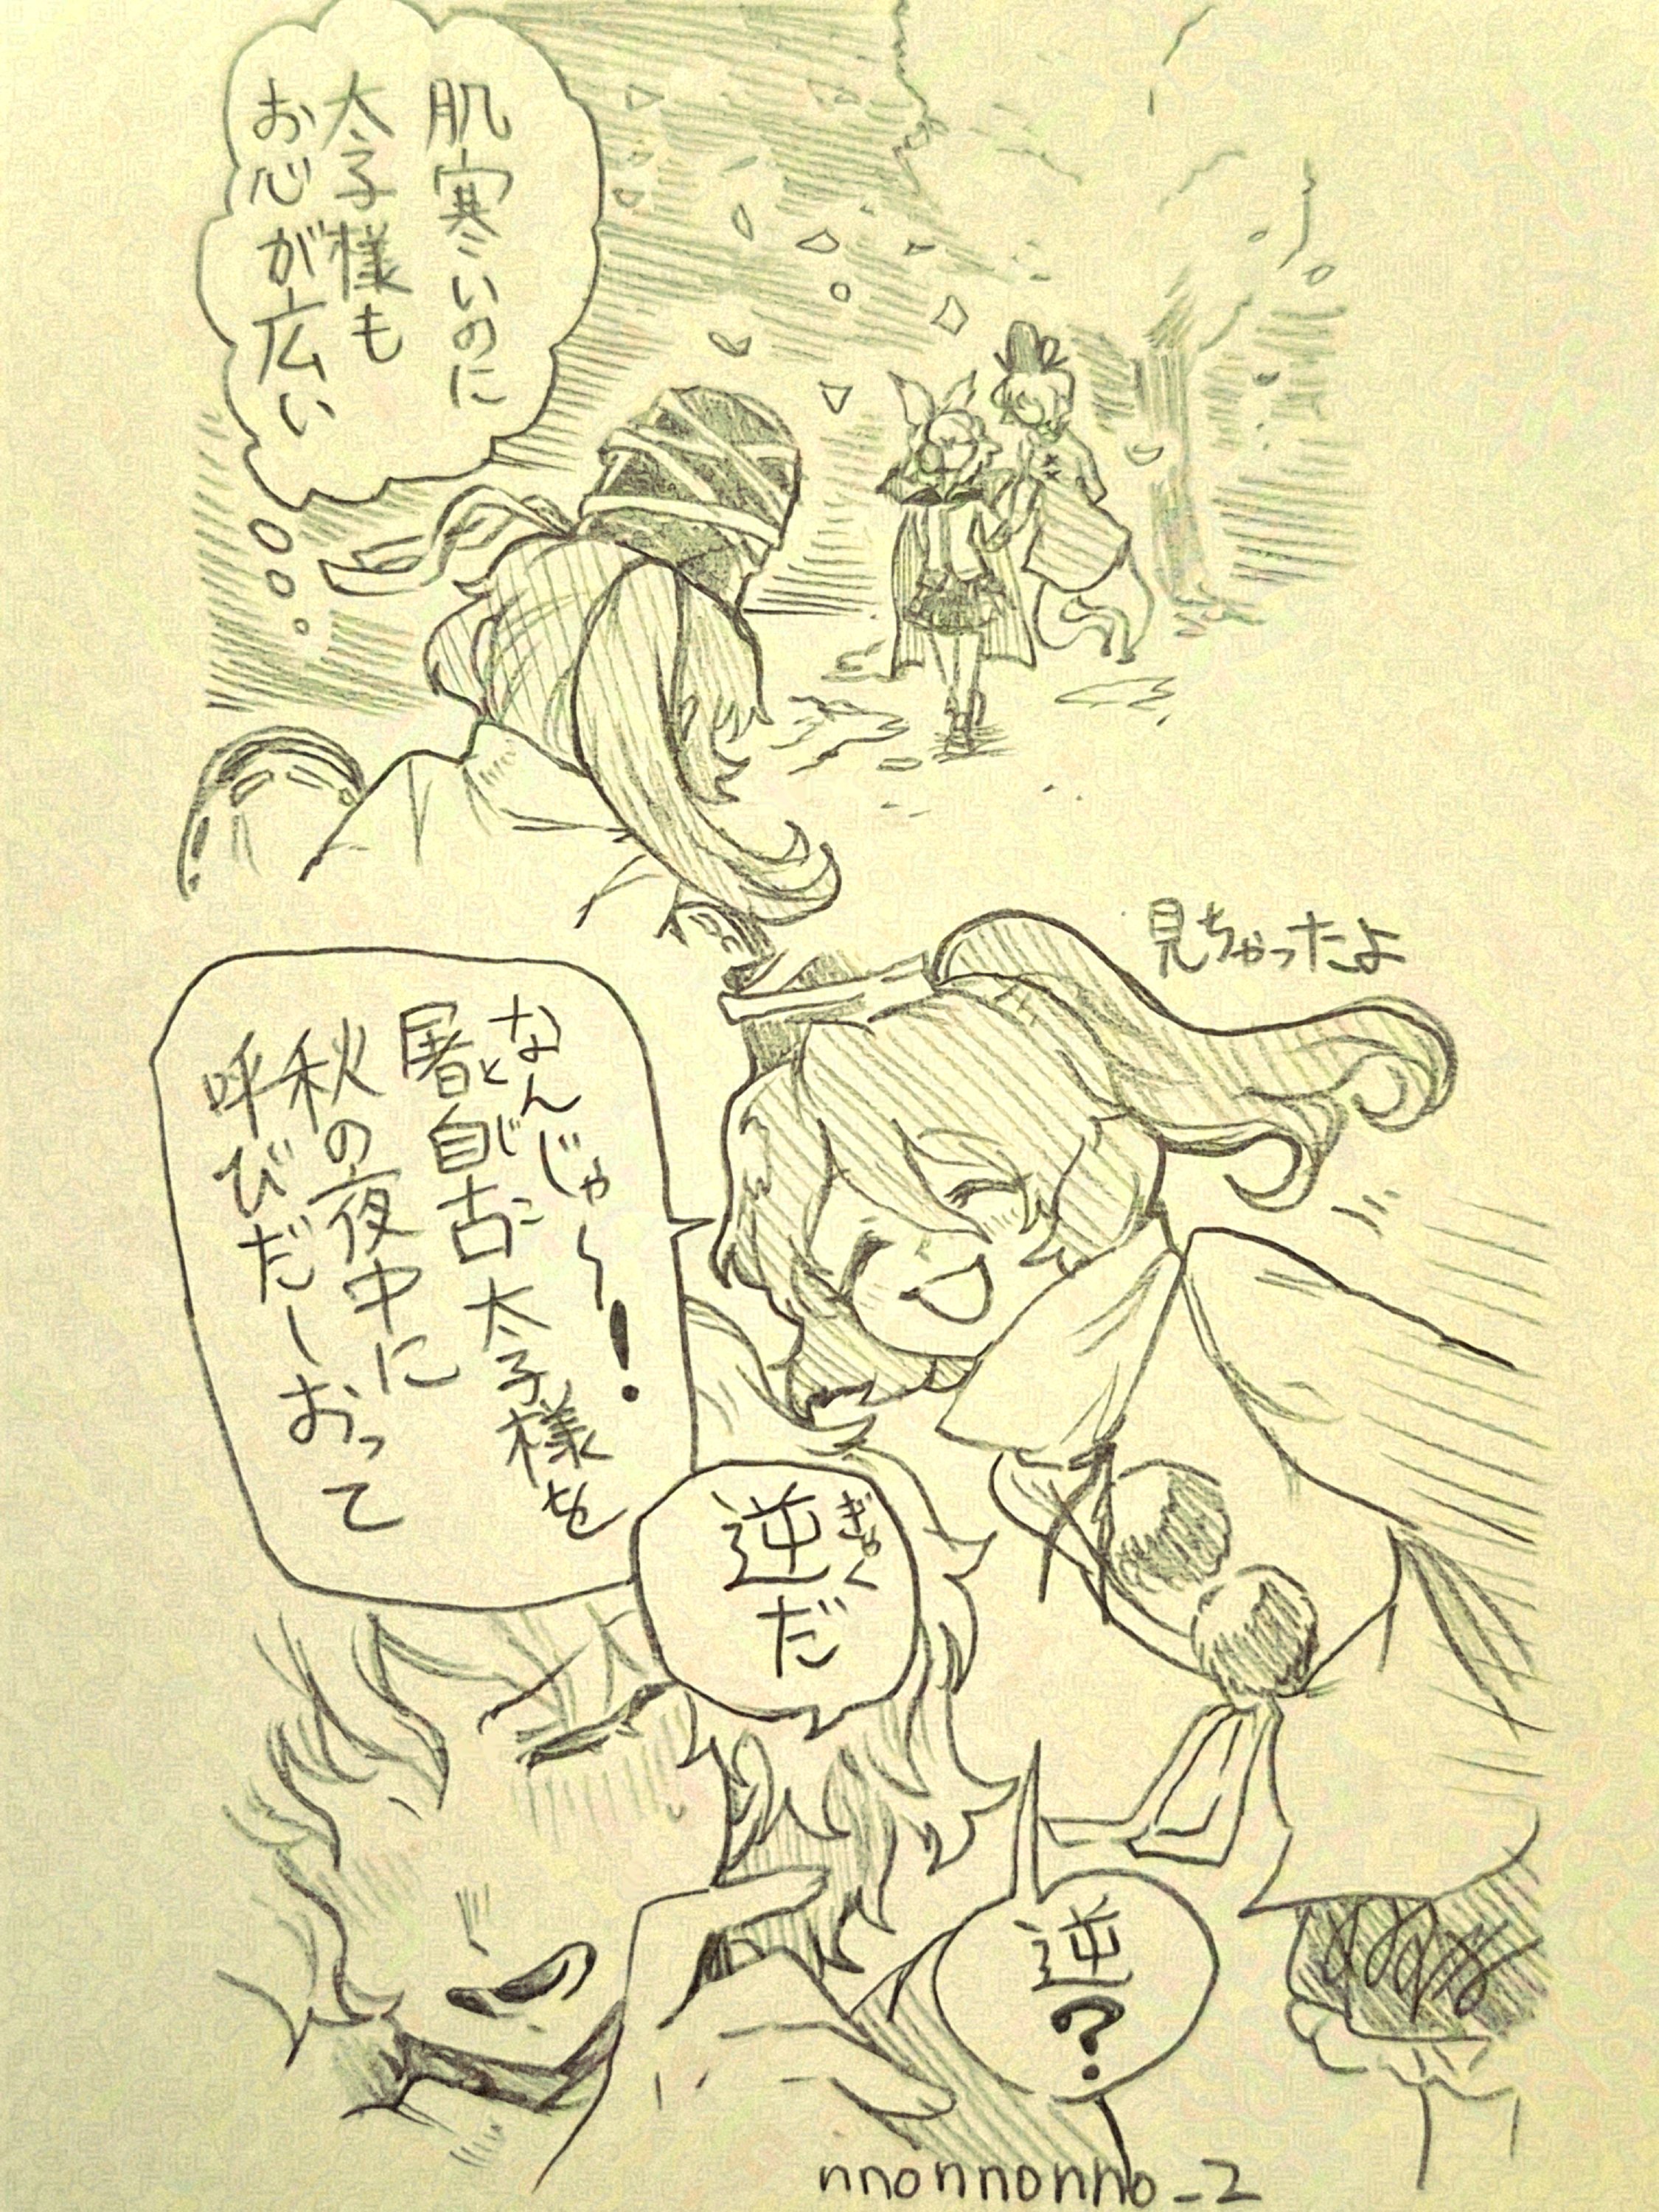 肌寒いのに
太子様も
お心が広い
見ちゃったよ
なんじゃ～！
屠自古太子様を
とじこ
秋の夜中に
呼びだしおって
逆だ
ぎゃく
逆？
nnonnonnno_2